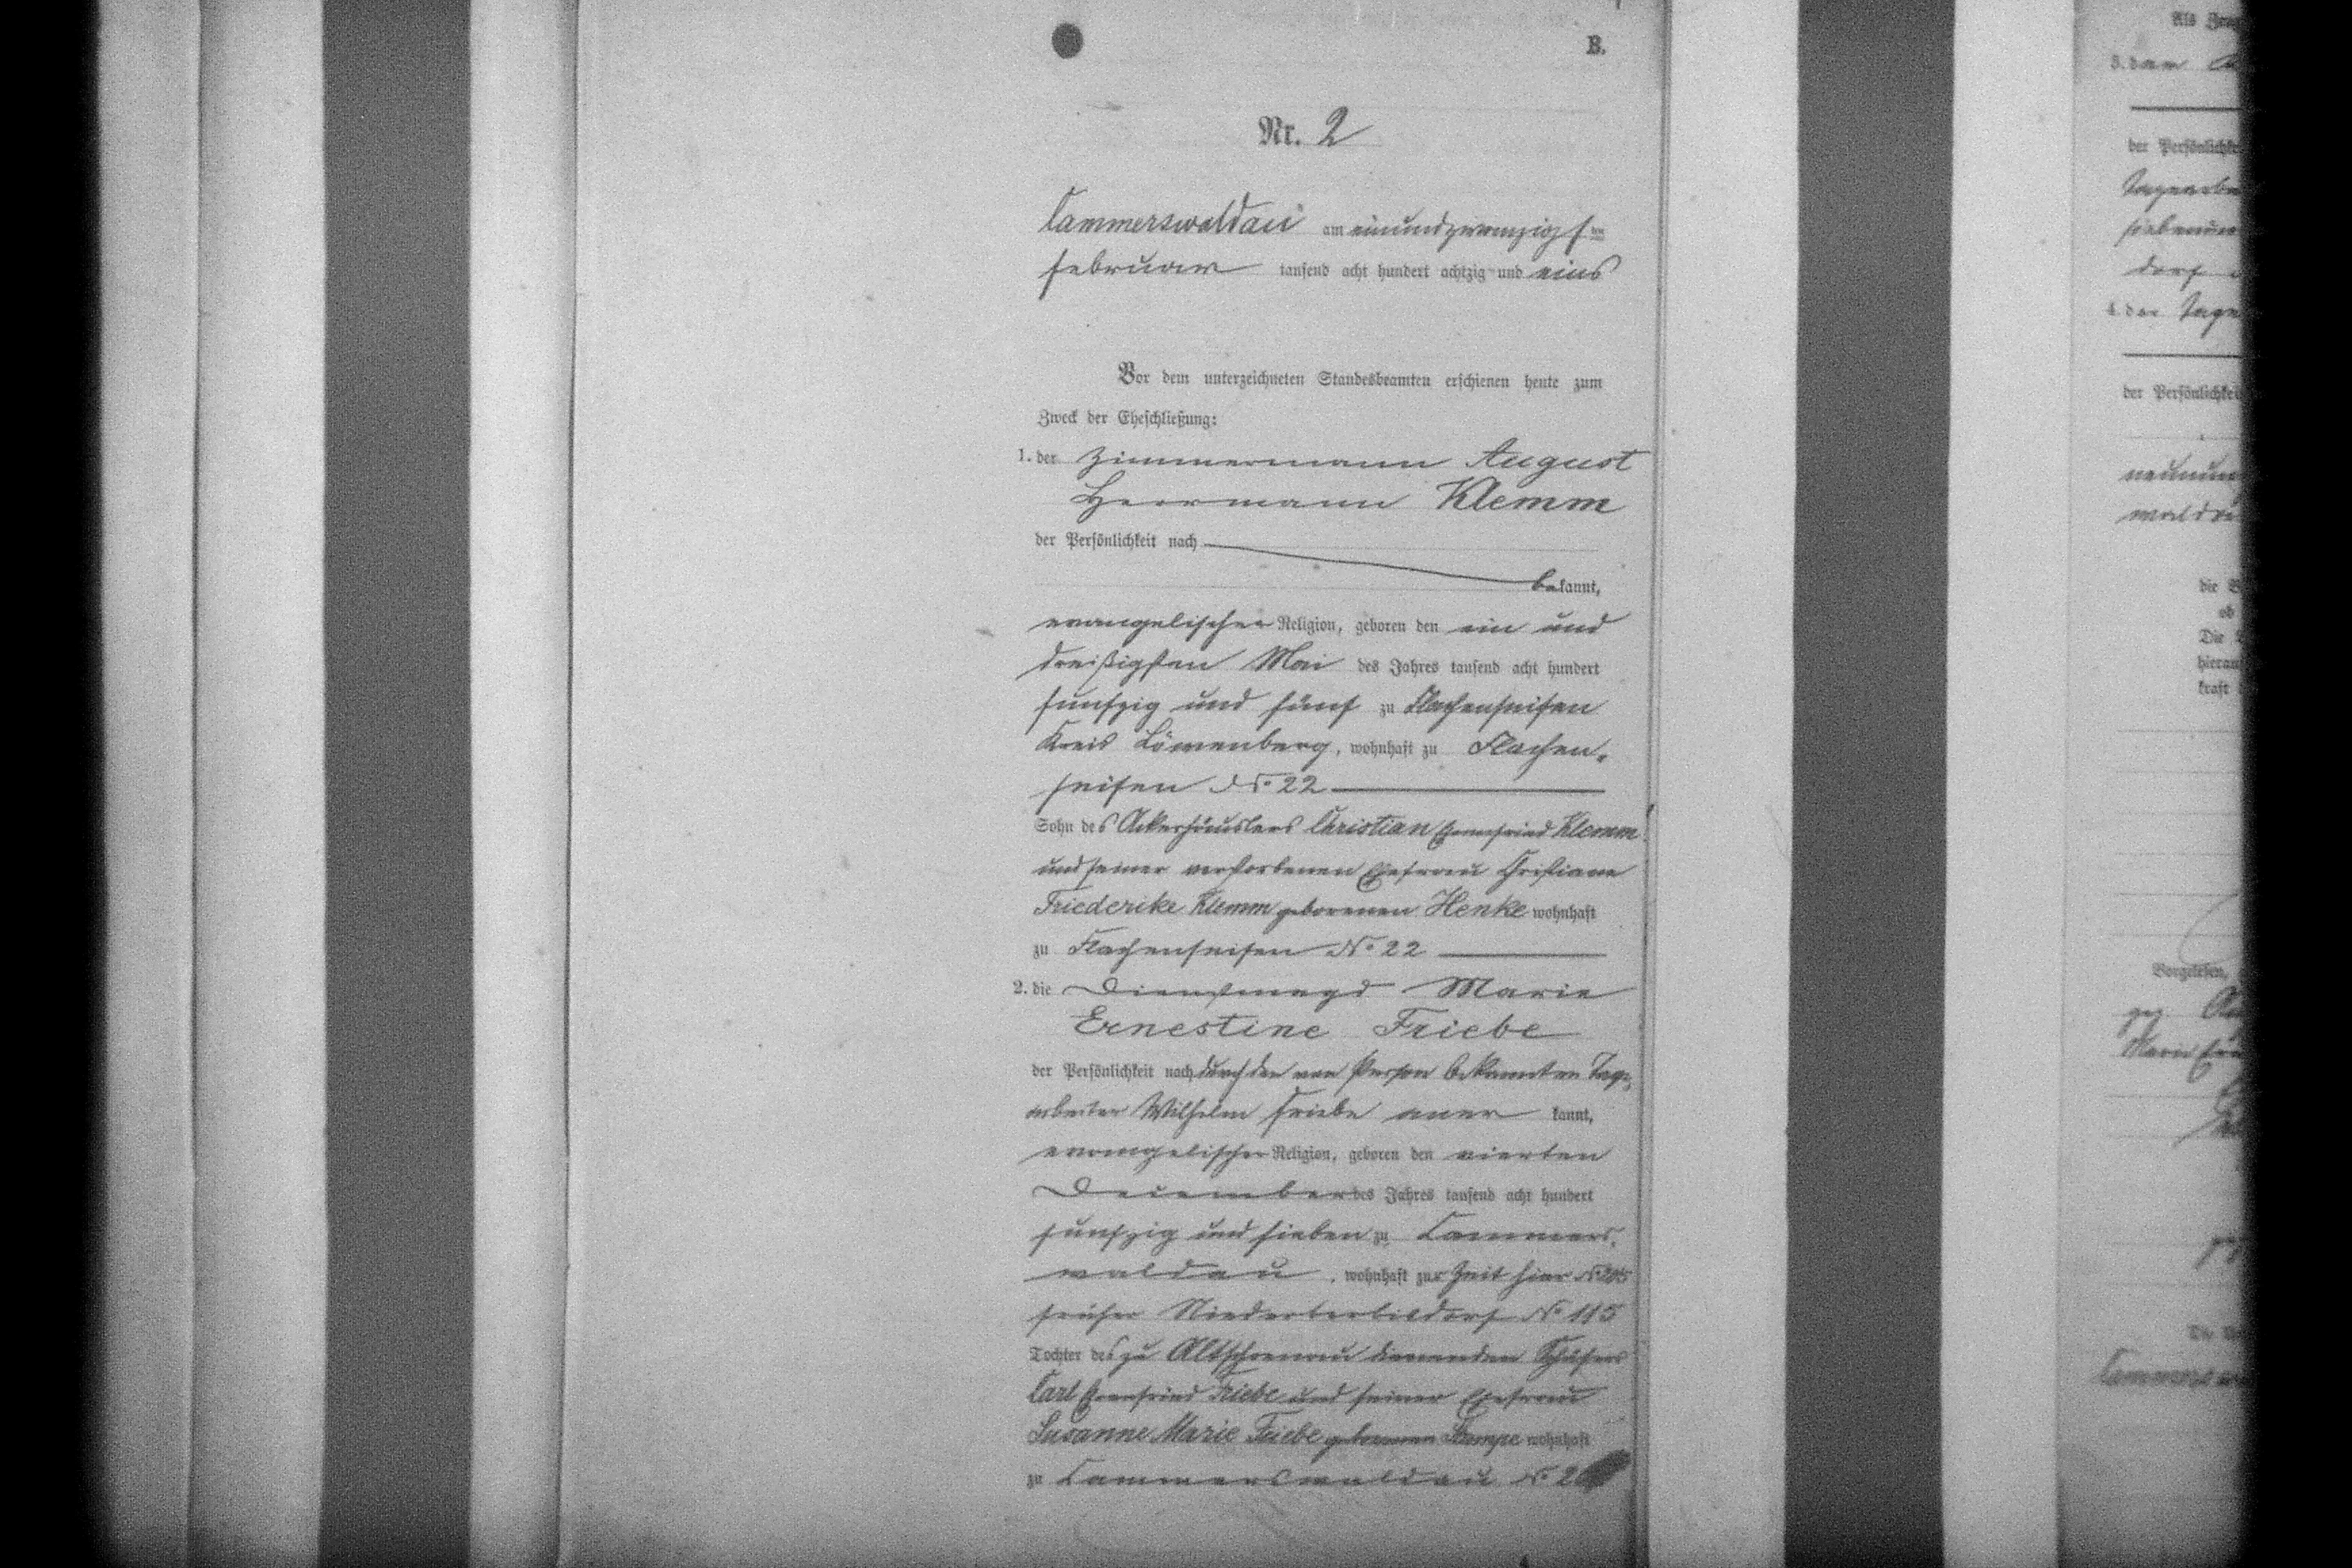 B.
Nr. 2
Cammerswaldau am einundzwanzigsten
Februar tausend acht hundert achtzig und eins
Vor dem unterzeichneten Standesbeamten erschienen heute zum
Zweck der Eheschließung:
1. der Zimmermann August
Herrmann Klemm
der Persönlichkeit nach
bekannt,
evangelischer Religion, geboren den ein und
dreißigsten Mai des Jahres tausend acht hundert
funfzig und fünf zu Flachenseifen
Kreis Löwenberg, wohnhaft zu Flachen-
seifen No 22
Sohn des Ackerhäuslers Christian Ehrenfried Klemm
und seiner verstorbenen Ehefrau Christiane
Friederike Klemm geborenen Henke wohnhaft
zu Flachenseifen No 22
2. die Dienstmagd Marie
Ernestine Friebe
der Persönlichkeit nach durch den von Person bekannten Tage-
arbeiter Wilhelm Friebe aner kannt,
evangelischer Religion, geboren den vierten
December des Jahres tausend acht hundert
funfzig und sieben zu Cammers-
waldau, wohnhaft zur Zeit hier No
früher Niederberbisdorf No 115
Tochter des zu Altschoenau dienenden Schäfers
Carl Ehrenfried Friebe und seiner Ehefrau
Susanne Marie Friebe geborenen Stumpe wohnhaft
zu Cammerswaldau No
Als
3. der
der Persönlichkei
Tagearbe
siebenun
dorf
4. der Tage
der Persönlichkei
neunun
waldau
die
ob
Die
hierau
kraft
Vorgelesen,
gez
Marie
Die
Cammersw